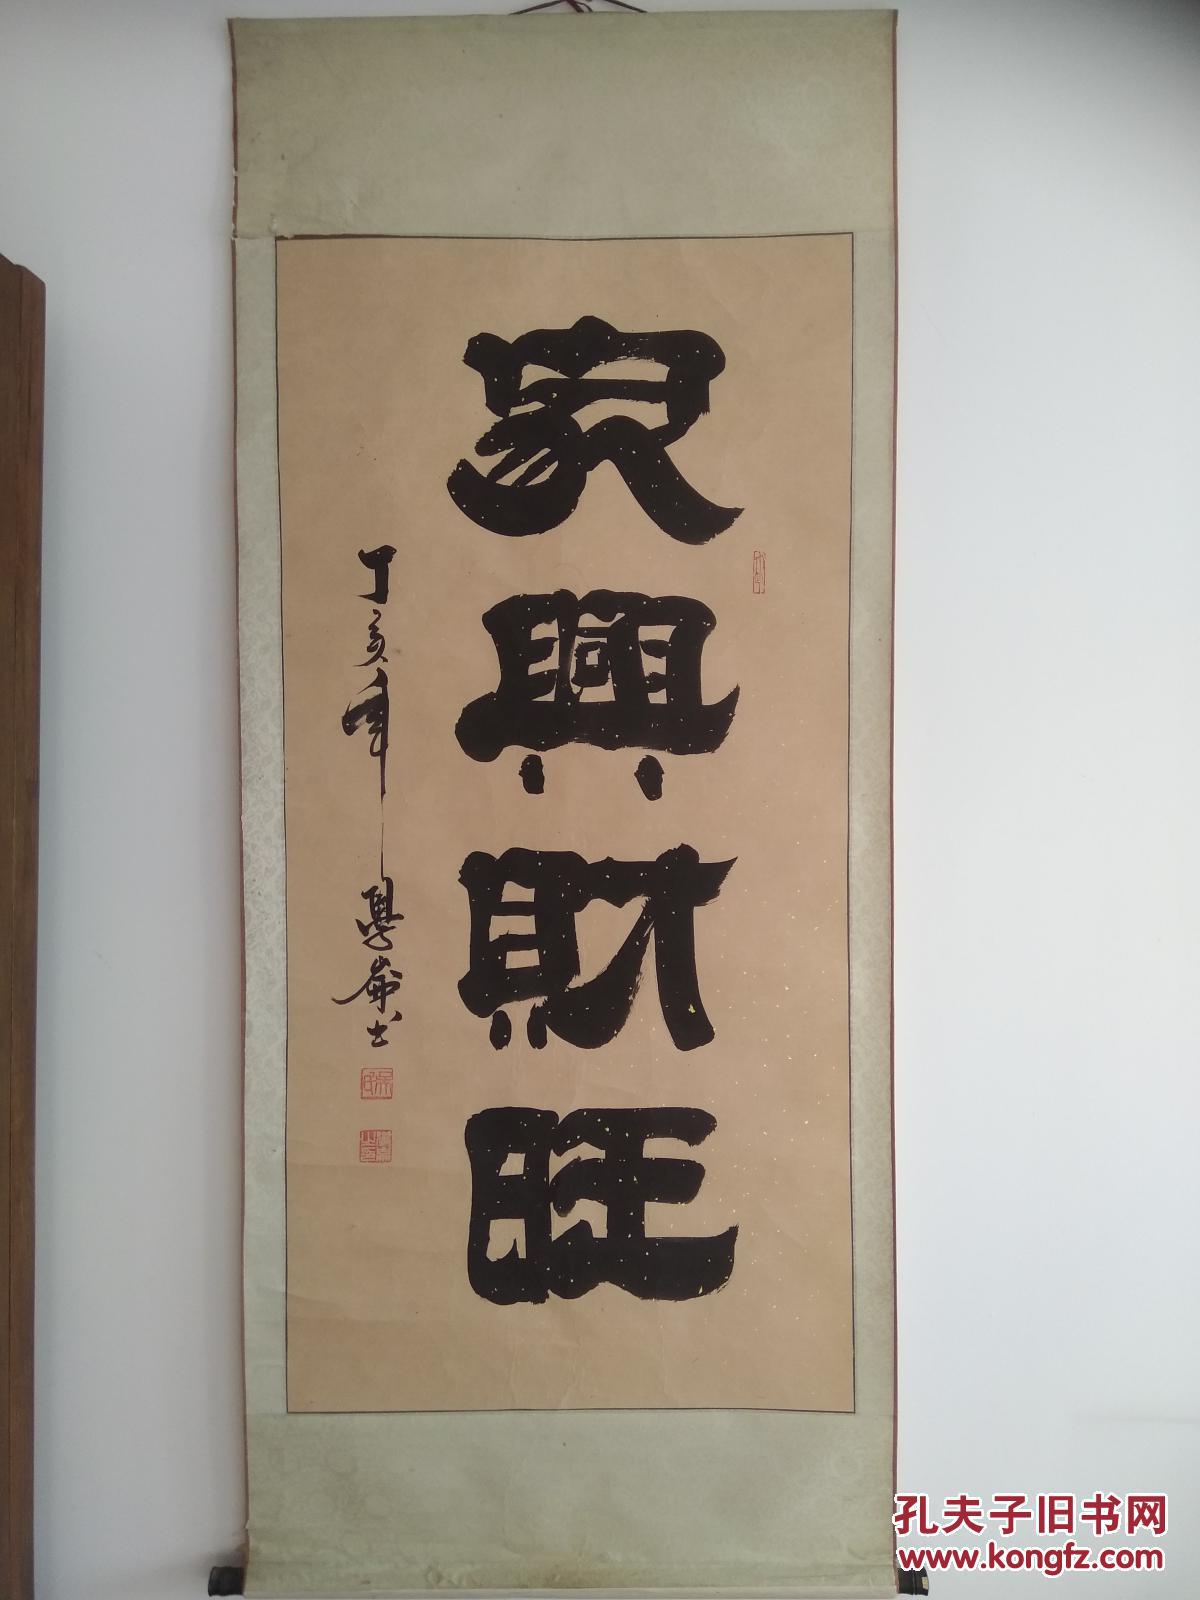 家興財旺
丁亥年
书
孔夫子旧书网
www.kongfz.com